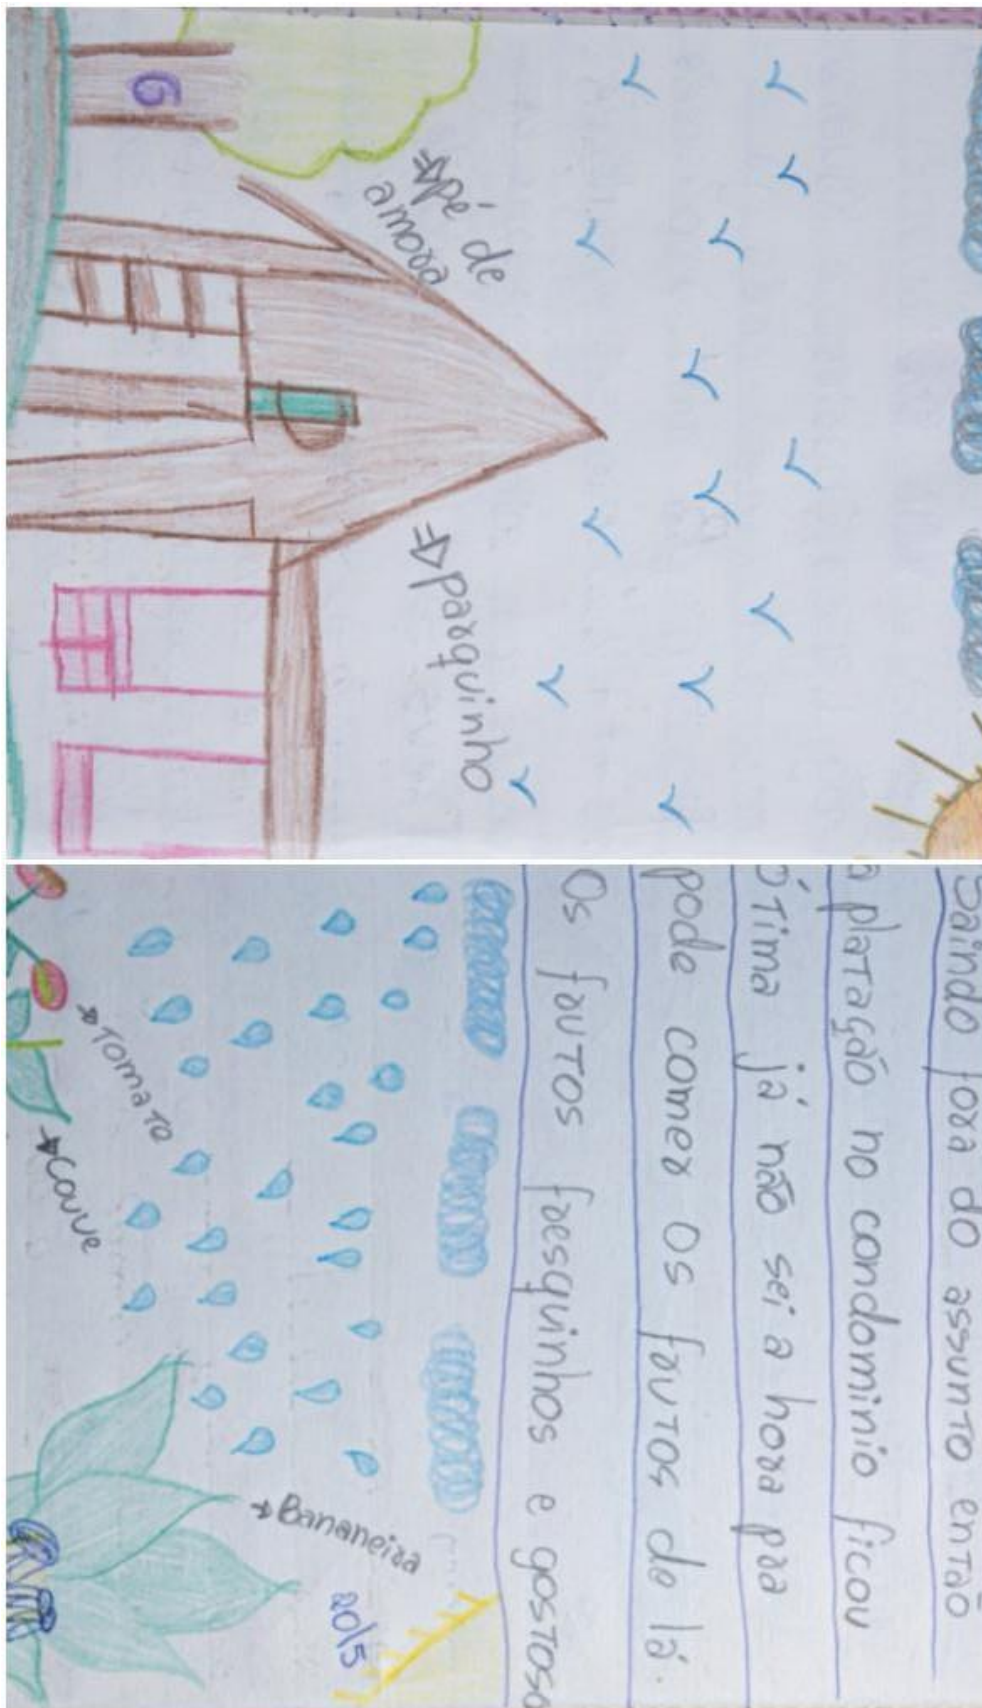 6
⇒ pé de
amora
⇒ parquinho
Saindo fora do assunto então
a platação no condominio ficou
óTima já não sei a hora pra
pode comer os frutos de lá.
Os frutos fresquinhos e gostoso
→ Tomate
→ Couve
→ Bananeira
20/5